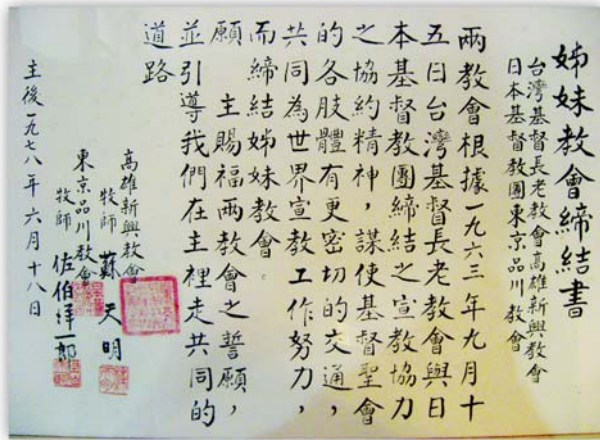 姊妹教會締結書
台灣基督長老教會高雄新興教會
日本基督教團東京品川教會
兩教會根據一九六三年九月十
五日台灣基督長老教會與日
本基督教團締結之宣教協力
之協約精神，謀使基督聖會
的各肢體有更密切的交通，
共同為世界宣教工作努力，
而締結姊妹教會。
願　主賜福兩教會之誓願，
並引導我們在主裡走共同的
道路
高雄新興教會
牧師　蘇天明
東京品川教會
牧師　佐伯洋一郎
主後一九七八年六月十八日